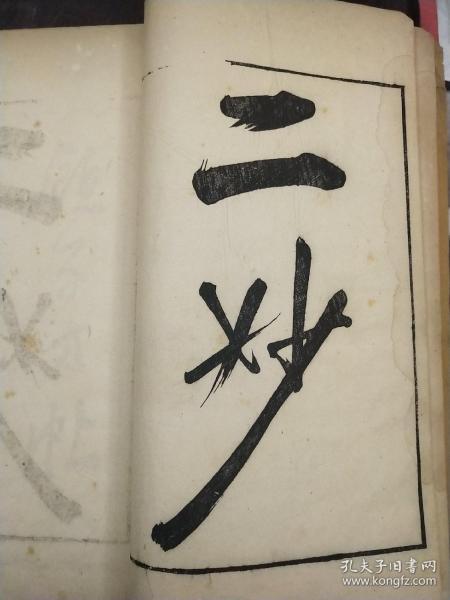 二妙
孔夫子旧书网
www.kongfz.com